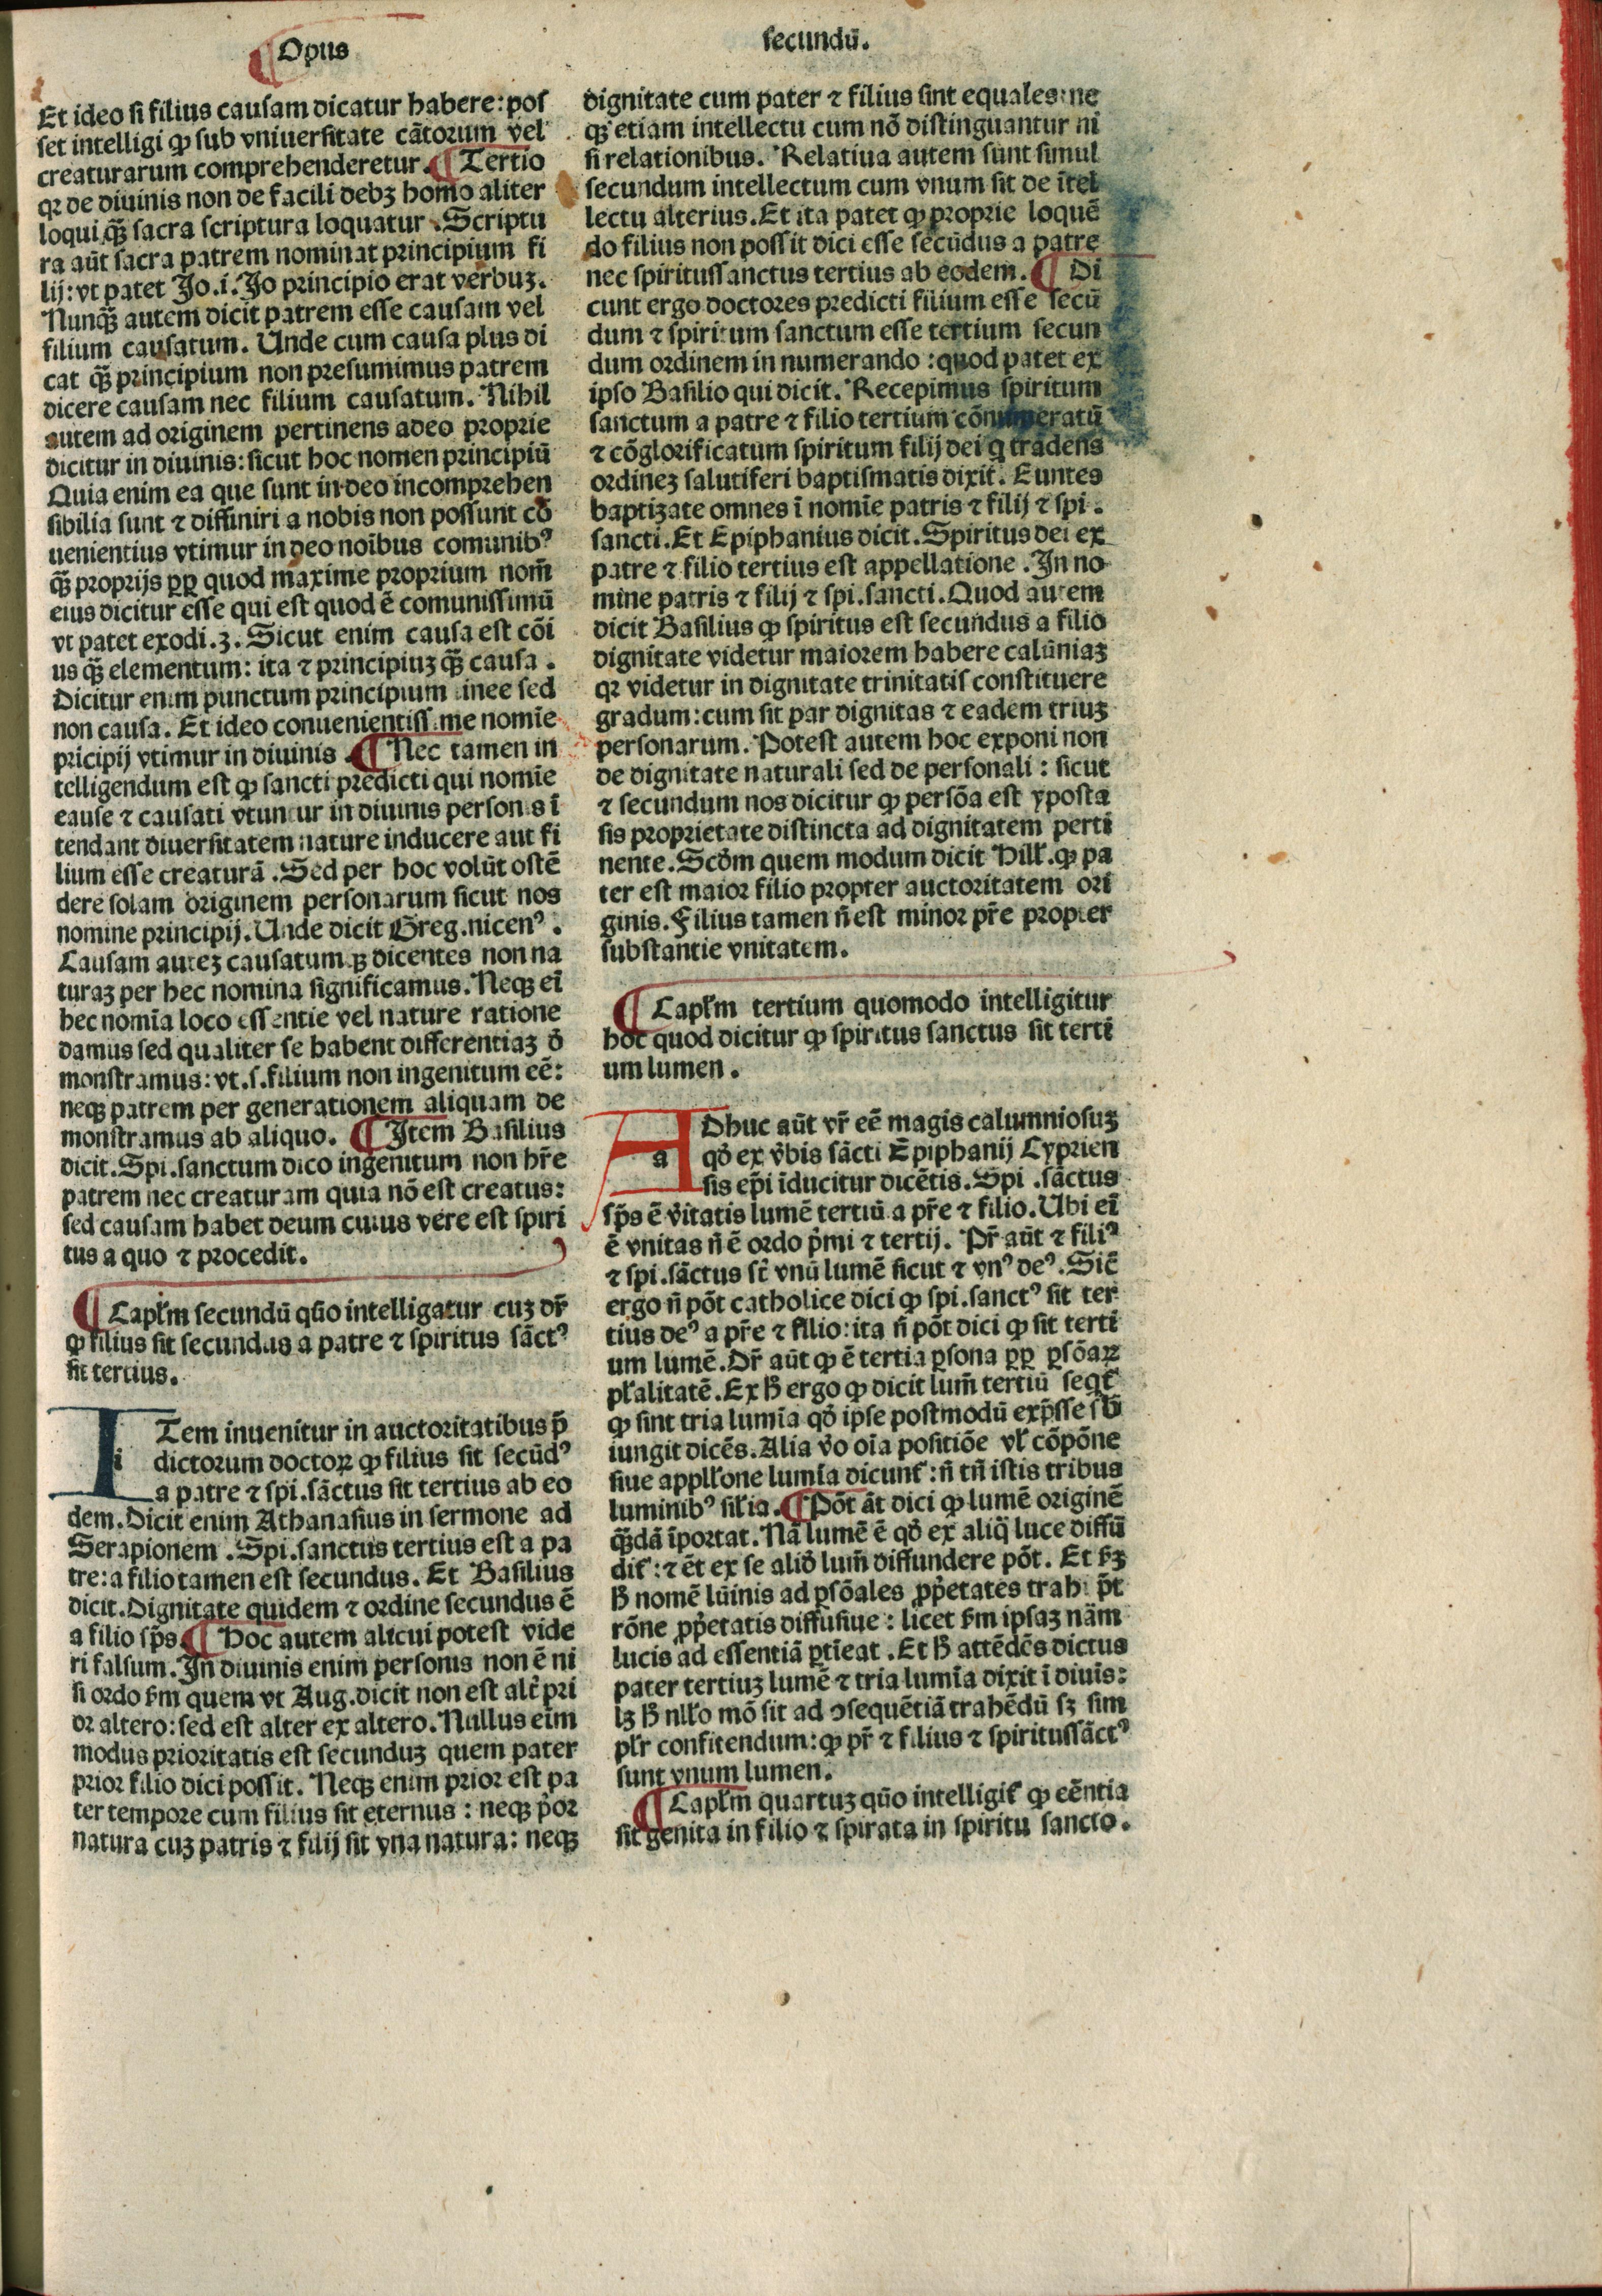 ¶Opus
secundū.
Et ideo si filius causam dicatur habere: pos
set intelligi ꝙ sub vniuersitate cātorum vel
creaturarum comprehenderetur. ¶Tertio
qꝛ de diuinis non de facili debꝫ homo aliter
loqui qꝫ̄ sacra scriptura loquatur. Scriptu
ra aūt sacra patrem nominat principium fi
lij: vt patet Jo.i. Jo principio erat verbuꝫ.
Nunqꝫ̄ autem dicit patrem esse causam vel
filium causatum. Unde cum causa plus di
cat qꝫ̄ principium non presumimus patrem
dicere causam nec filium causatum. Nihil
autem ad originem pertinens adeo proprie
dicitur in diuinis: sicut hoc nomen principiū
Quia enim ea que sunt in deo incomprehen
sibilia sunt ⁊ diffiniri a nobis non possunt cō
uenientius vtimur in deo noībus comunibꝰ
qꝫ̄ proprijs ꝓꝑ quod maxime proprium nom̄
eius dicitur esse qui est quod ē comunissimū
vt patet exodi.3. Sicut enim causa est cōi
us qꝫ̄ elementum: ita ⁊ principiuꝫ qꝫ̄ causa.
Dicitur enim punctum principium linee sed
non causa. Et ideo conuenientissime nomīe
pricipij vtimur in diuinis. ¶Nec tamen in
telligendum est ꝙ sancti predicti qui nomīe
cause ⁊ causati vtuntur in diuinis personis ī
tendant diuersitatem nature inducere aut fi
lium esse creaturā. Sed per hoc volūt ostē
dere solam originem personarum sicut nos
nomine principij. Unde dicit Greg.nicenꝰ.
Causam auteꝫ causatumqꝫ dicentes non na
turaꝫ per hec nomina significamus. Neqꝫ eī
hec nomīa loco essentie vel nature ratione
damus sed qualiter se habent differentiaꝫ d̓
monstramus: vt.s.filium non ingenitum eē:
neqꝫ patrem per generationem aliquam de
monstramus ab aliquo. ¶Item Basilius
dicit. Spi.sanctum dico ingenitum non hr̄e
patrem nec creaturam quia nō est creatus:
sed causam habet deum cuius vere est spiri
tus a quo ⁊ procedit.
¶Capl̄m secundū qūo intelligatur cuꝫ dr̄
ꝙ filius sit secundus a patre ⁊ spiritus sāctꝰ
sit tertius.
ITem inuenitur in auctoritatibus p̄
dictorum doctoꝝ ꝙ filius sit secūdꝰ
a patre ⁊ spi.sāctus sit tertius ab eo
dem. Dicit enim Athanasius in sermone ad
Serapionem. Spi.sanctus tertius est a pa
tre: a filio tamen est secundus. Et Basilius
dicit. Dignitate quidem ⁊ ordine secundus ē
a filio sp̄s. ¶Hoc autem alicui potest vide
ri falsum. In diuinis enim personis non ē ni
si ordo ẜm quem vt Aug.dicit non est alt̓ pri
or altero: sed est alter ex altero. Nullus eīm
modus prioritatis est secunduꝫ quem pater
prior filio dici possit. Neqꝫ enim prior est pa
ter tempore cum filius sit eternus: neqꝫ p̓or
natura cuꝫ patris ⁊ filij sit vna natura: neqꝫ
dignitate cum pater ⁊ filius sint equales: ne
qꝫ etiam intellectu cum nō distinguantur ni
si relationibus. Relatiua autem sunt simul
secundum intellectum cum vnum sit de ītel
lectu alterius. Et ita patet ꝙ proprie loquē
do filius non possit dici esse secūdus a patre
nec spiritussanctus tertius ab eodem. ¶Di
cunt ergo doctores predicti filium esse secū
dum ⁊ spiritum sanctum esse tertium secun
dum ordinem in numerando: quod patet ex
ipso Basilio qui dicit. Recepimus spiritum
sanctum a patre ⁊ filio tertium cōnumeratū
⁊ cōglorificatum spiritum filij dei q tradens
ordineꝫ salutiferi baptismatis dixit. Euntes
baptizate omnes ī nomīe patris ⁊ filij ⁊ spi.
sancti. Et Epiphanius dicit. Spiritus dei ex
patre ⁊ filio tertius est appellatione. In no
mine patris ⁊ filij ⁊ spi.sancti. Quod autem
dicit Basilius ꝙ spiritus est secundus a filio
dignitate videtur maiorem habere calūniaꝫ
qꝛ videtur in dignitate trinitatis constituere
gradum: cum sit par dignitas ⁊ eadem triuꝫ
personarum. Potest autem hoc exponi non
de dignitate naturali sed de personali: sicut
⁊ secundum nos dicitur ꝙ persōa est yposta
sis proprietate distincta ad dignitatem perti
nente. Scd̓m quem modum dicit Hill̓. ꝙ pa
ter est maior filio propter auctoritatem ori
ginis. Filius tamen n̄ est minor pr̄e propter
substantie vnitatem.
¶Capl̄m tertium quomodo intelligitur
hoc quod dicitur ꝙ spiritus sanctus sit terti
um lumen.
ADhuc aūt vr̄ eē magis calumniosuꝫ
qd̓ ex v̓bis sācti Epiphanij Cyprien
sis ep̄i īducitur dicētis. Spi.sāctus
sp̄s ē v̓itatis lumē tertiū a pr̄e ⁊ filio. Ubi eī
ē vnitas n̄ ē ordo p̓mi ⁊ tertij. Pr̄ aūt ⁊ filiꝰ
⁊ spi.sāctus st̄ vnū lumē sicut ⁊ vnꝰ deꝰ. Sic̄
ergo n̄ pōt catholice dici ꝙ spi.sanctꝰ sit ter
tius deꝰ a pr̄e ⁊ filio: ita n̄ pōt dici ꝙ sit terti
um lumē. Dr̄ aūt ꝙ ē tertia ꝑsona ꝓꝑ ꝑsōaꝝ
pl̓alitatē. Ex h̄ ergo ꝙ dicit lum̄ tertiū seqt̓
ꝙ sint tria lumīa qd̓ ipse postmodū exp̄sse sb̄
iungit dicēs. Alia v̓o oīa positiōe vl̓ cōpōne
siue appll̓one lumīa dicunt̓: n̄ tn̄ istis tribus
luminibꝰ sil̓ia. ¶Pōt āt dici ꝙ lumē originē
qꝫ̄dā īportat. Nā lumē ē qd̓ ex aliq̄ luce diffū
dit̓: ⁊ ēt ex se aliud̓ lum̄ diffundere pōt. Et ẜꝫ
h̄ nomē lūinis ad ꝑsōales ꝓp̓etates trahi p̄t
rōne ꝓp̓etatis diffusiue: licet ẜm ipsaꝫ nām
lucis ad essentiā ꝑtīeat. Et h̄ attēdēs dictus
pater tertiuꝫ lumē ⁊ tria lumīa dixit ī diuīs:
lꝫ h̄ nll̓o mō sit ad ɔsequētiā trahēdū sꝫ sim
pl̓r confitendum: ꝙ pr̄ ⁊ filius ⁊ spiritussāctꝰ
sunt vnum lumen.
¶Capl̄m quartuꝫ qūo intelligit̓ ꝙ eēntia
sit genita in filio ⁊ spirata in spiritu sancto.